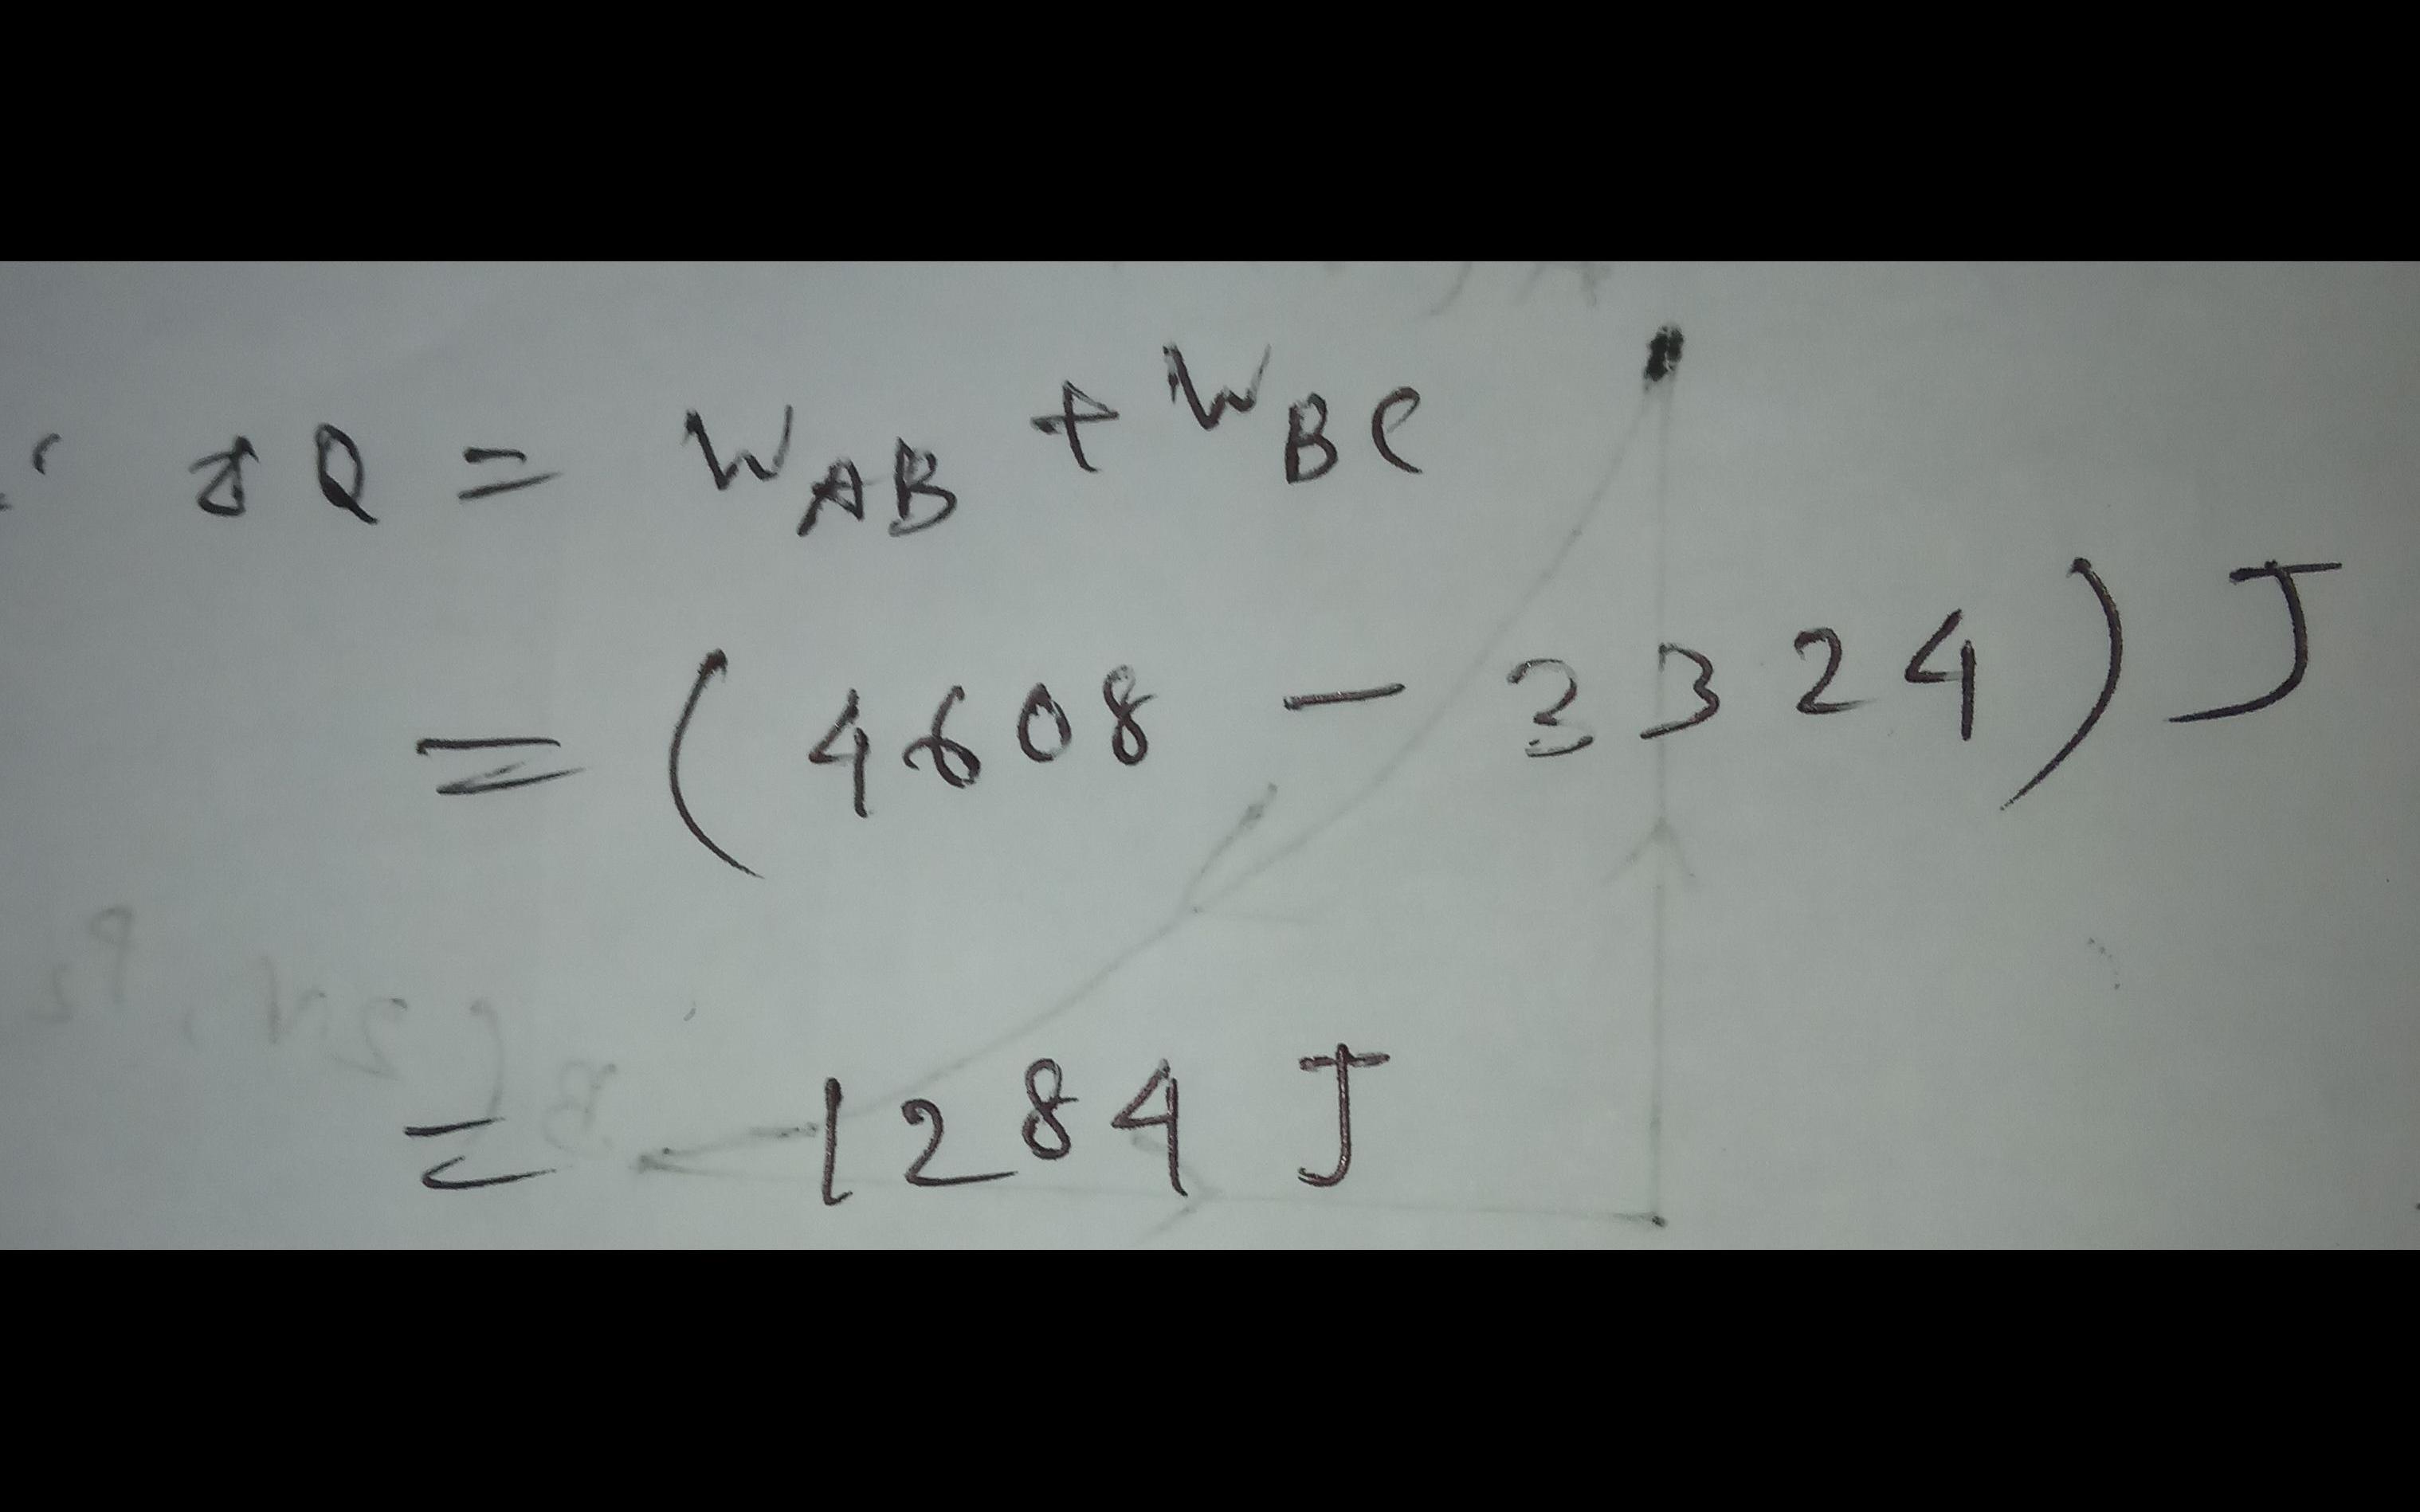 ∴ δQ = W_AB + W_BC
= (4608 - 3324) J
= 1284 J